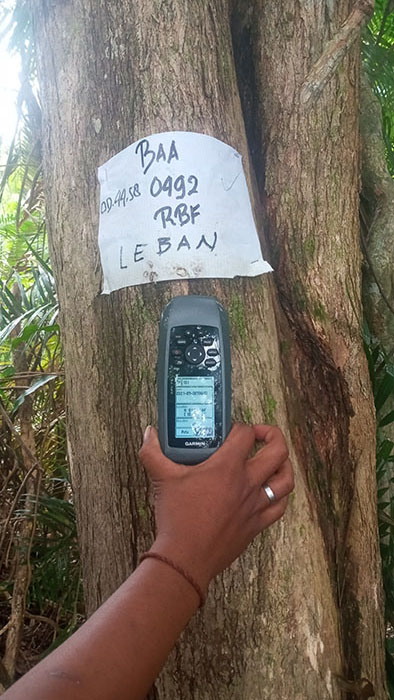 BAA
0D.44.58 0492
RBF
LEBAN
GARMIN